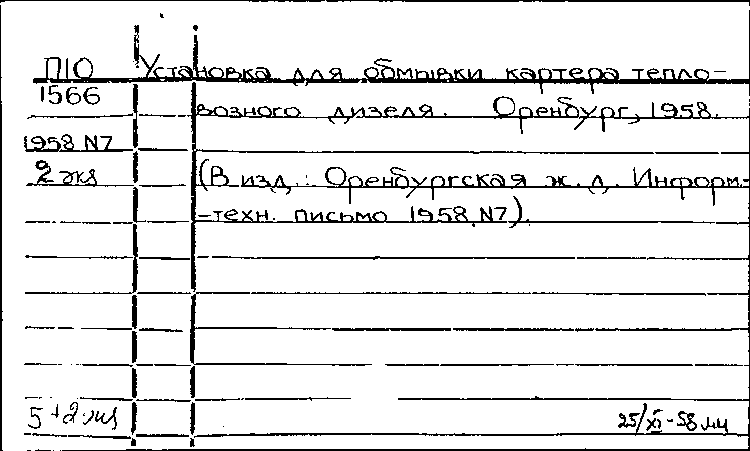 П10 Установка для обмывки картера тепло-
1566 возного дизеля. Оренбург, 1958.
1958 N7
2 экз (В изд.: Оренбургская ж.д. Информ.-
-техн. письмо 1958, N7).
5+2 экз 25/XI-58